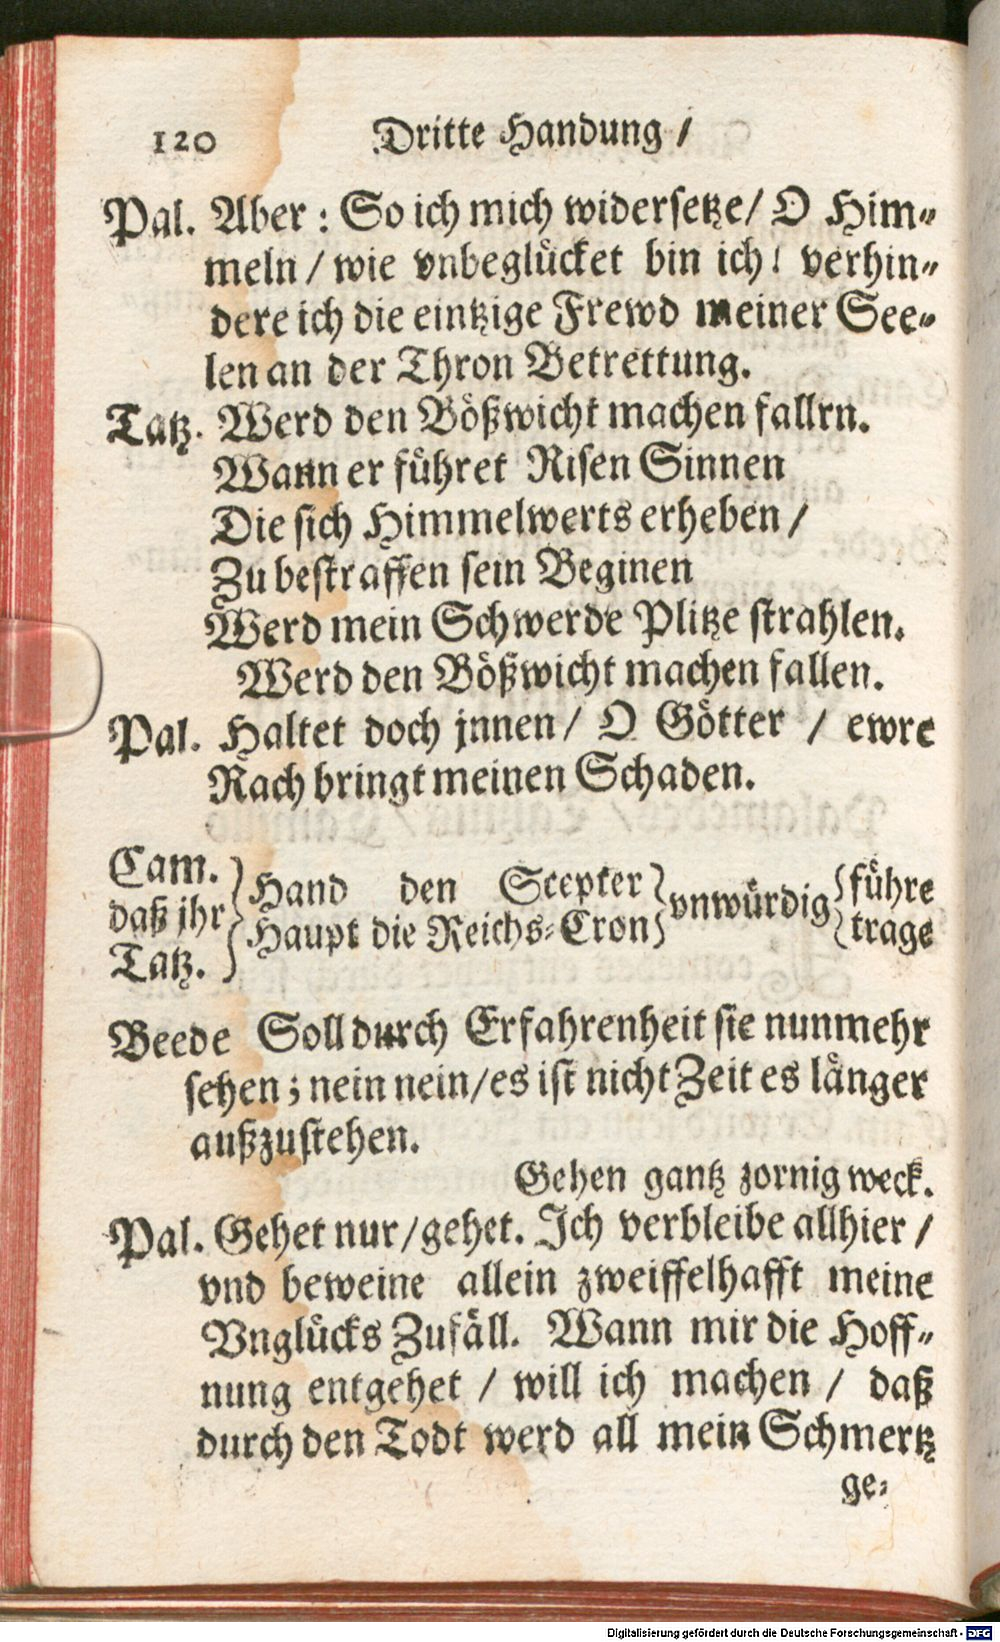 120 Dritte Handung /
Pal. Aber : So ich mich widersetze/ O Him-
meln / wie vnbeglücket bin ich! verhin-
dere ich die eintzige Frewd meiner See-
len an der Thron Betrettung.
Tatz. Werd den Bößwicht machen fallrn.
Wann er führet Risen Sinnen
Die sich Himmelwerts erheben /
Zu bestraffen sein Beginen
Werd mein Schwerde Plitze strahlen.
Werd den Bößwicht machen fallen.
Pal. Haltet doch jnnen / O Götter / ewre
Rach bringt meinen Schaden.
Cam.
daß jhr
Tatz.
Hand den Scepter
Haupt die Reichs-Cron
vnwürdig
führe
trage
Beede Soll durch Erfahrenheit sie nunmehr
sehen; nein nein/es ist nicht Zeit es länger
außzustehen.
Gehen gantz zornig weck.
Pal. Gehet nur/gehet. Ich verbleibe allhier /
vnd beweine allein zweiffelhafft meine
Vnglücks Zufäll. Wann mir die Hoff-
nung entgehet / will ich machen / daß
durch den Todt werd all mein Schmertz
ge-
Digitalisierung gefördert durch die Deutsche Forschungsgemeinschaft - DFG